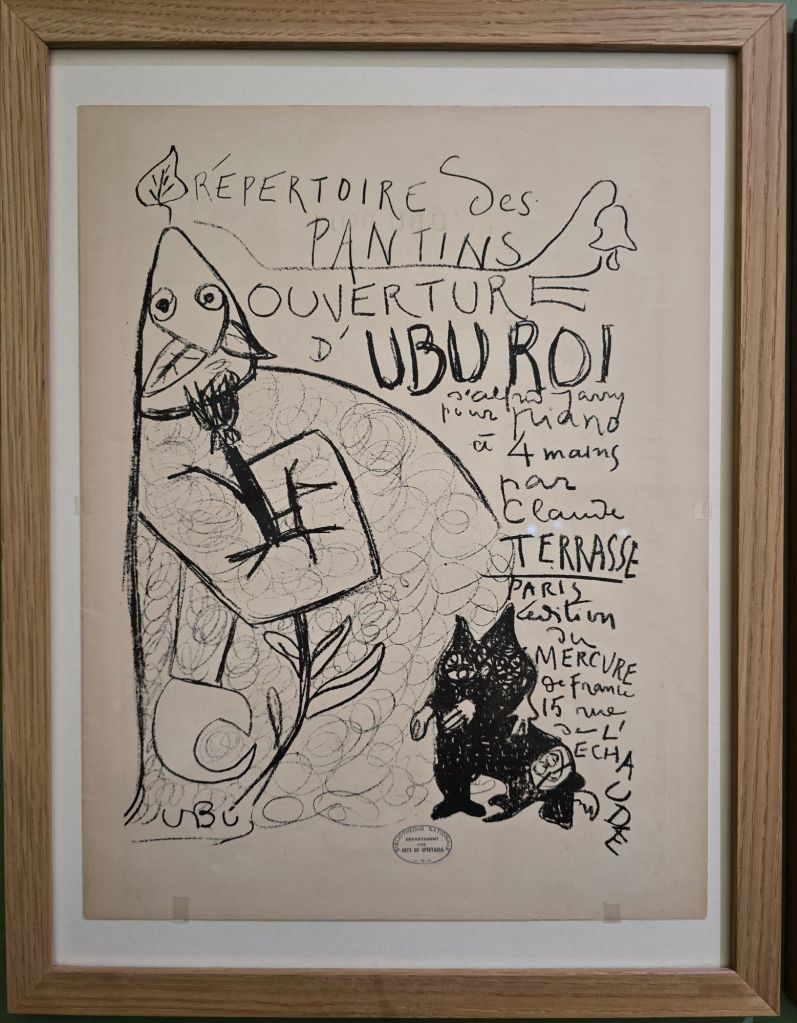 RÉPERTOIRE Des
PANTINS
OUVERTURE
D'UBU ROI
d'alfred Jarry
pour piano
à 4 mains
par
Claude
TERRASSE
PARIS
édition
du
MERCURE
de France
15 rue
de L'
ECHAUDE
UBU
BIBLIOTHÈQUE NATIONALE
DÉPARTEMENT
DES
ARTS DU SPECTACLE